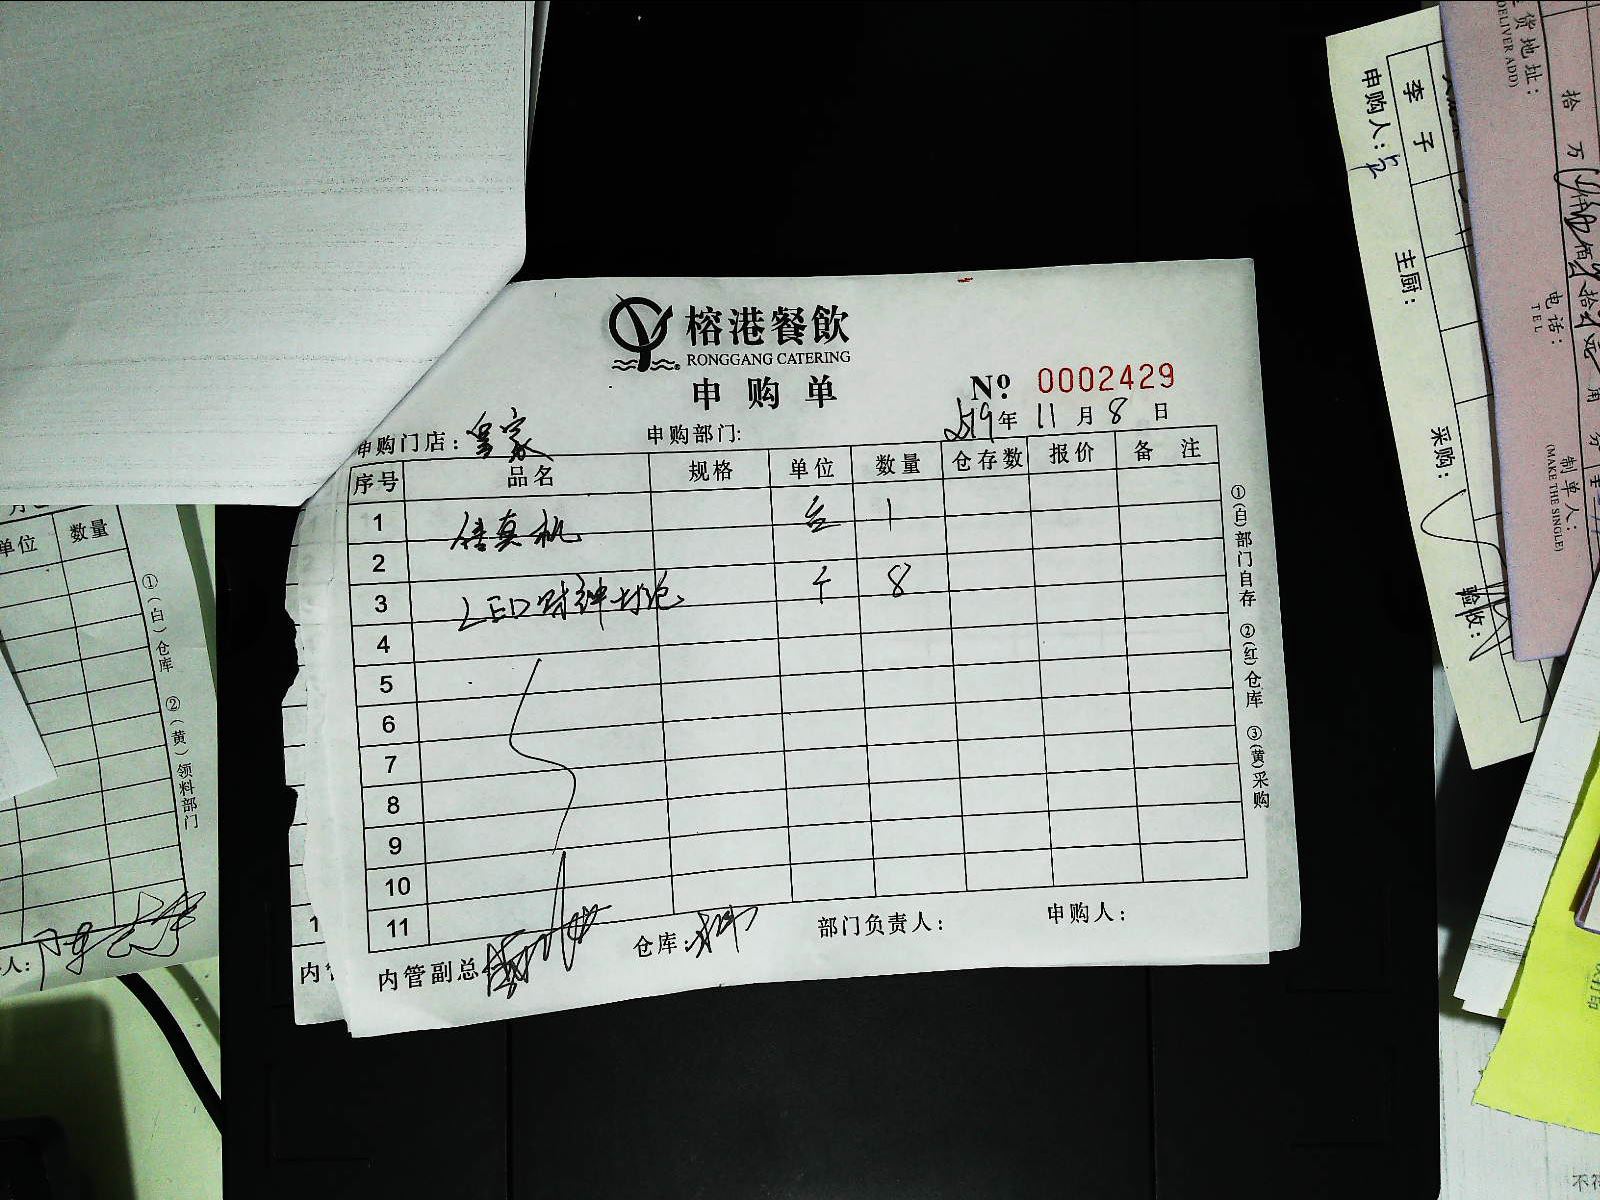 榕港餐飲
RONGGANG CATERING
申购单
Nº 0002429
2019年 11月 8日
申购门店：皇家 申购部门:
序号 品名 规格 单位 数量 仓存数 报价 备 注
1 传真机 台 1
2
3 LED财神灯泡 个 8
4
5
6
7
8
9
10
11
内管副总 仓库: 部门负责人： 申购人：
①(白)部门自存 ②(红)仓库 ③(黄)采购
单位 数量
①(白)仓库 ②(黄)领料部门
人:
1
内
李子
申购人:
主厨:
采购:
验收:
货地址:
DELIVER ADD)
拾 万 佰 拾 角 分
电话:
TEL
制单人:
(MAKE THE SINGLE)